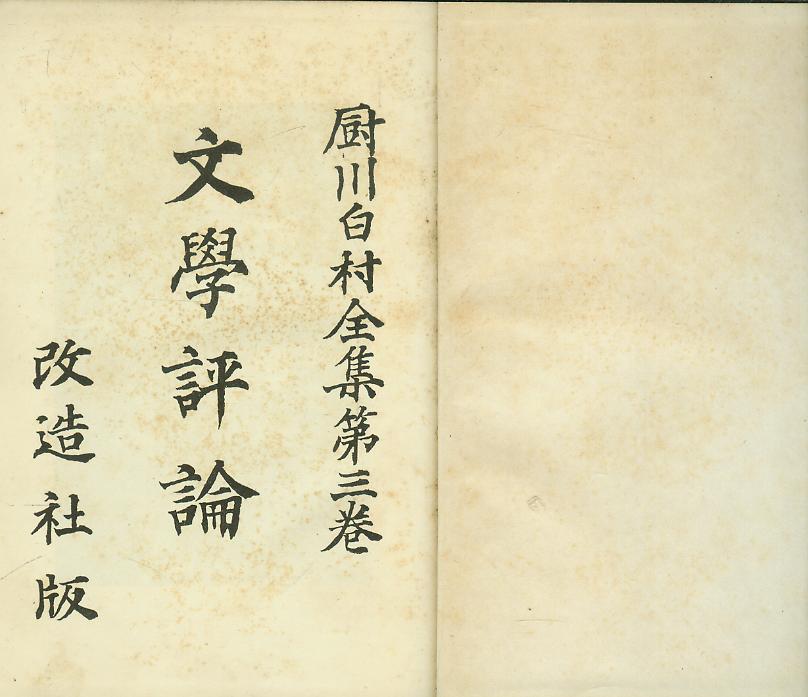 厨川白村全集第三卷
文學評論
改造社版